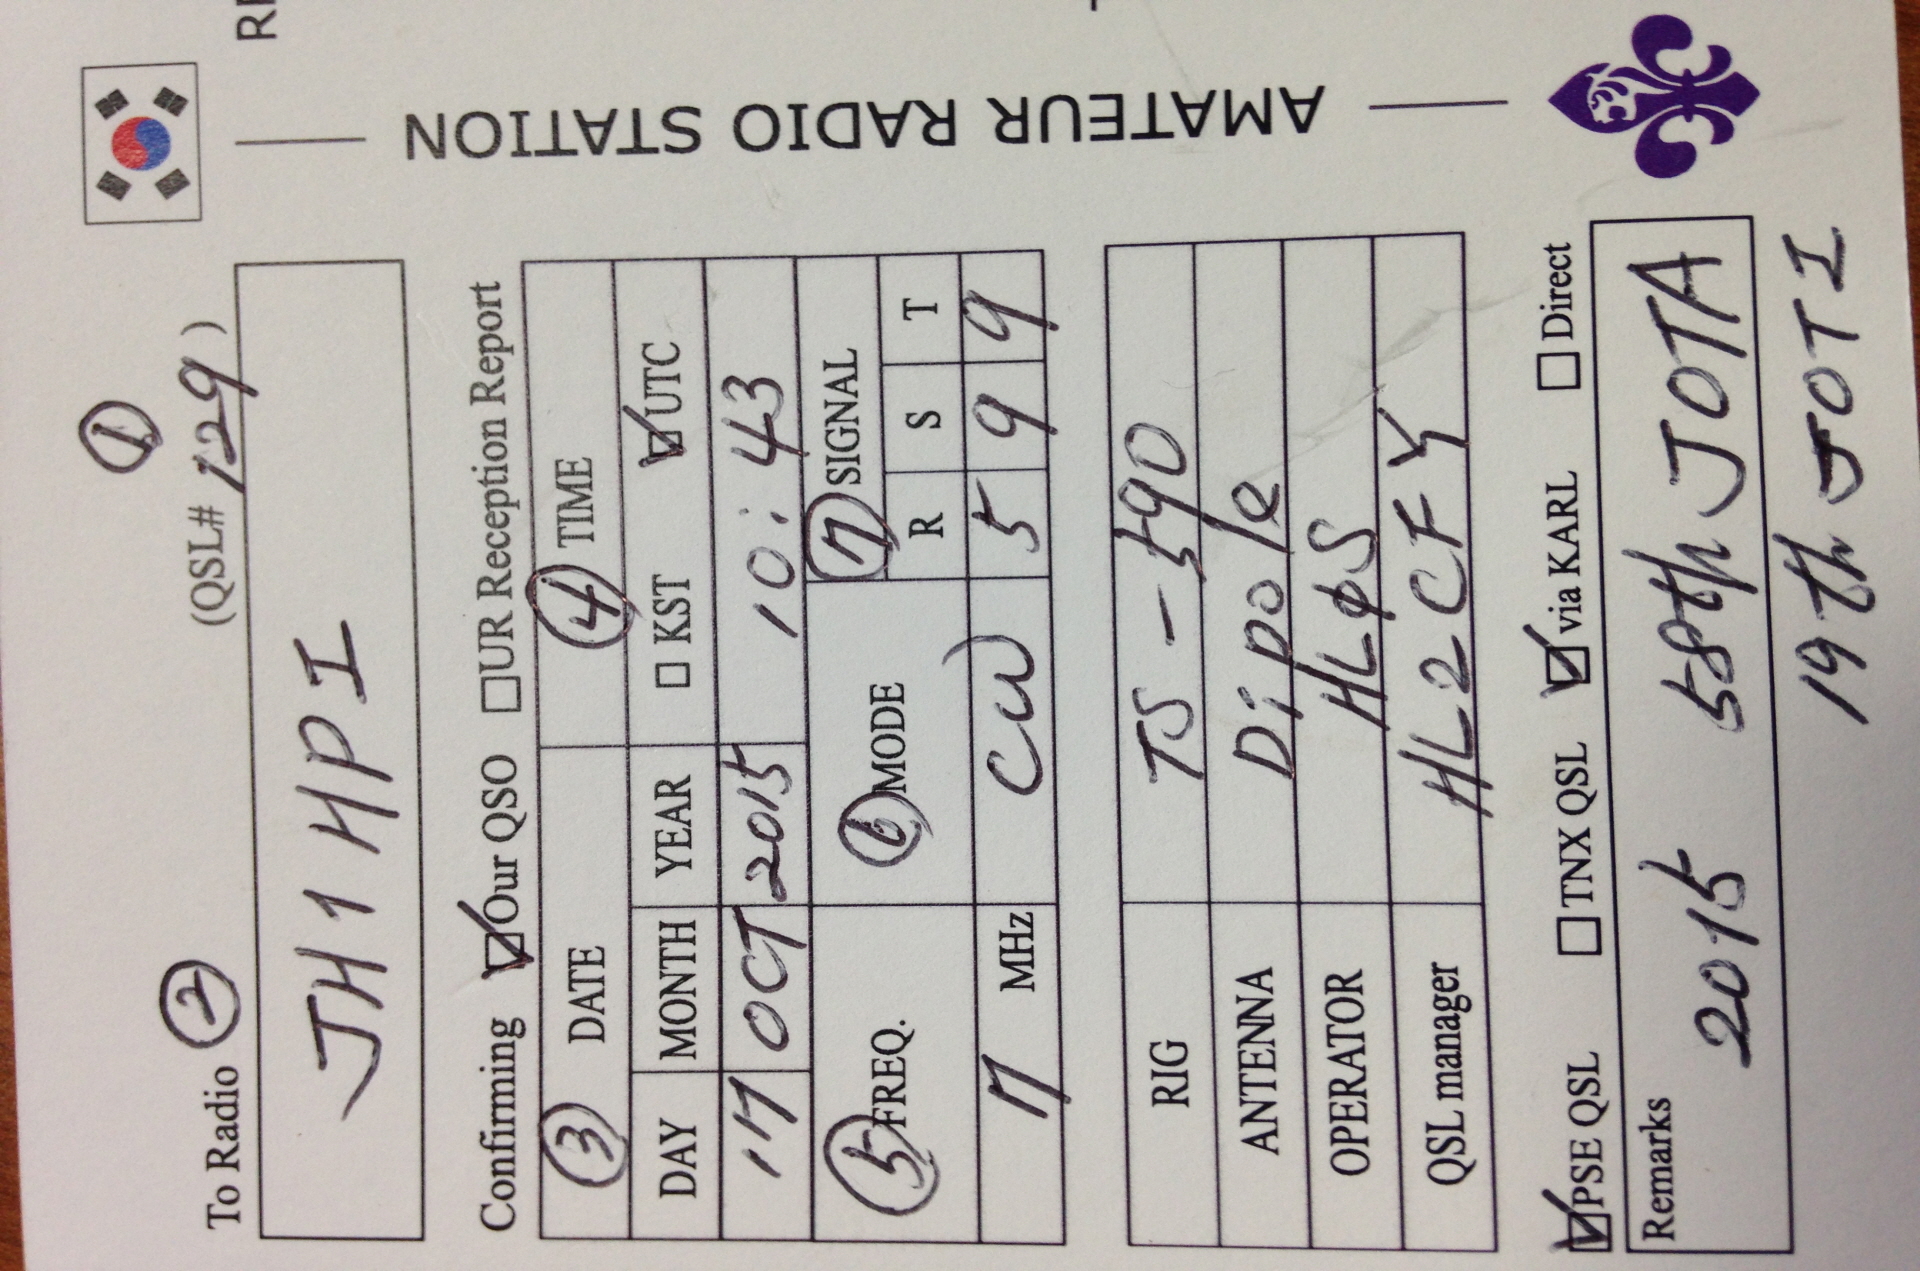 ①
(QSL# 129)
To Radio ②
JH1HPI
Confirming ☑Our QSO ☐UR Reception Report
③ DATE ④ TIME
DAY MONTH YEAR ☐ KST ☑UTC
17 OCT 2015 10:43
⑤FREQ. ⑥MODE ⑦SIGNAL
R S T
7 MHz CW 5 9 9
RIG TS-590
ANTENNA Dipole
OPERATOR HLØS
QSL manager HL2CFY
☑PSE QSL ☐TNX QSL ☑via KARL ☐Direct
Remarks
2015 58th JOTA
19th JOTI
AMATEUR RADIO STATION